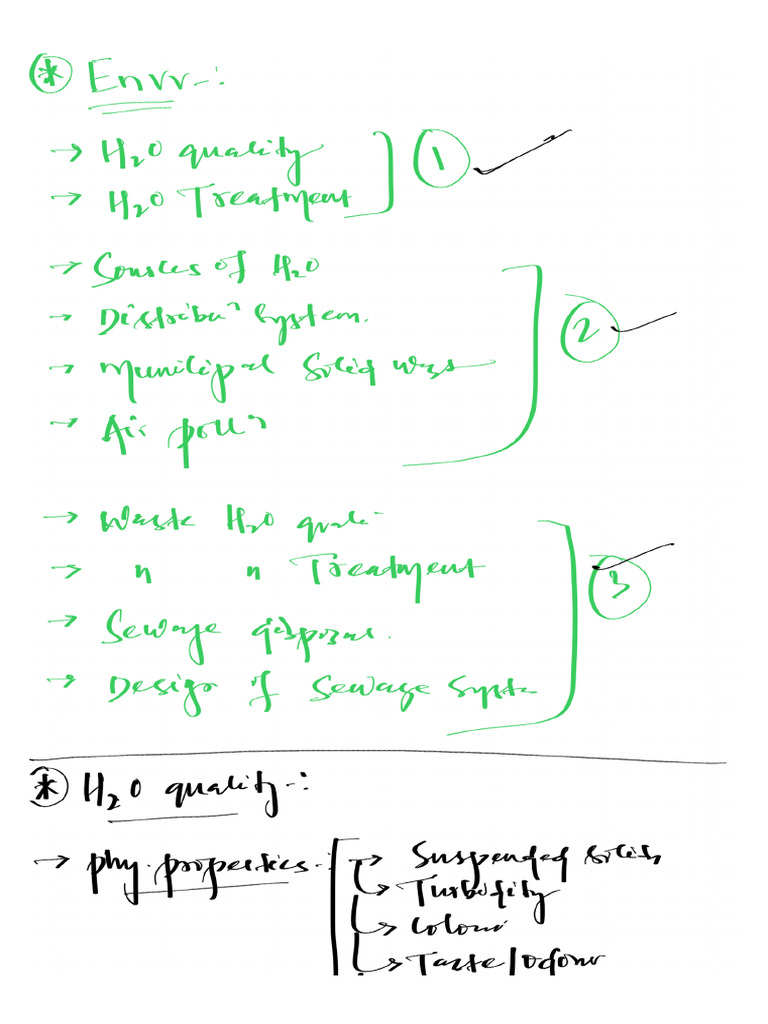 * Envr-:
→ H2O quality
→ H2O Treatment
1
→ Sources of H2O
→ Distribuⁿ System.
→ Municipal Solid Was
→ Air pollⁿ
2
→ Waste H2O quali-
→ " " Treatment
→ Sewage disposal.
→ Design of Sewage Syste
3
* H2O quality-:
→ phy. properties-:
→ Suspended Solids
→ Turbidity
→ Colour
→ Taste/Odour